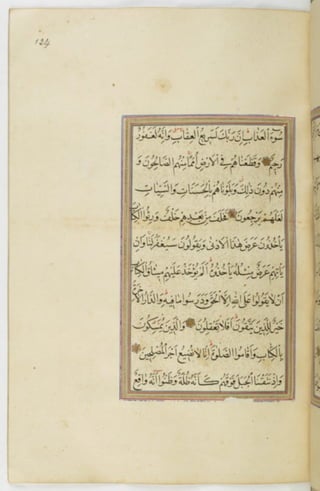 124
سُوٓءَ الْعَذَابِ اِنَّ رَبَّكَ لَسَرِيعُ الْعِقَابِ وَاِنَّهُ لَغَفُورٌ
رَحِيمٌ وَقَطَّعْنَاهُمْ فِي الْاَرْضِ اُمَمًا مِنْهُمُ الصَّالِحُونَ وَ
مِنْهُمْ دُونَ ذٰلِكَ وَبَلَوْنَاهُمْ بِالْحَسَنَاتِ وَالسَّيِّئَاتِ
لَعَلَّهُمْ يَرْجِعُونَ فَخَلَفَ مِنْ بَعْدِهِمْ خَلْفٌ وَرِثُوا الْكِتَابَ
يَأْخُذُونَ عَرَضَ هٰذَا الْاَدْنٰى وَيَقُولُونَ سَيُغْفَرُ لَنَا وَاِنْ
يَأْتِهِمْ عَرَضٌ مِثْلُهُ يَأْخُذُوهُ اَلَمْ يُؤْخَذْ عَلَيْهِمْ مِيثَاقُ الْكِتَابِ
اَنْ لَا يَقُولُوا عَلَى اللّٰهِ اِلَّا الْحَقَّ وَدَرَسُوا مَا فِيهِ وَالدَّارُ الْاٰخِرَةُ
خَيْرٌ لِلَّذِينَ يَتَّقُونَ اَفَلَا تَعْقِلُونَ وَالَّذِينَ يُمَسِّكُونَ
بِالْكِتَابِ وَاَقَامُوا الصَّلٰوةَ اِنَّا لَا نُضِيعُ اَجْرَ الْمُصْلِحِينَ
وَاِذْ نَتَقْنَا الْجَبَلَ فَوْقَهُمْ كَاَنَّهُ ظُلَّةٌ وَظَنُّوا اَنَّهُ وَاقِعٌ